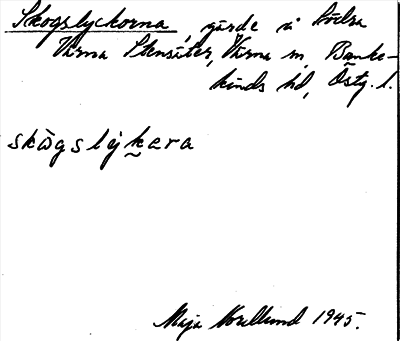 Skogslyckorna, gärde å Södra
Värna Stensäter, Värna sn, Banke-
kinds hd, Östg. l.
skògslýkera
Maja Norellund 1945.